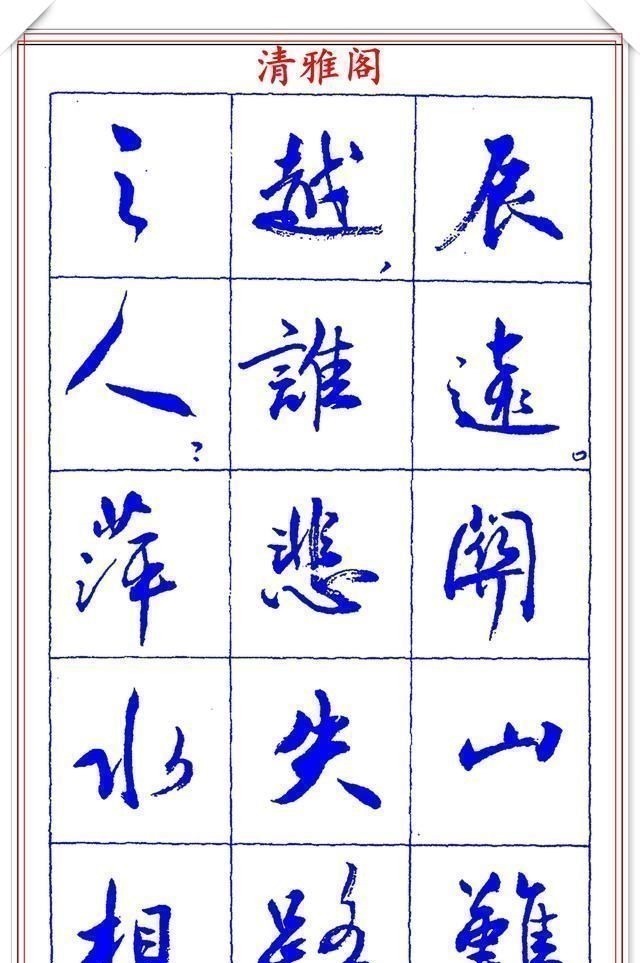 清雅阁
辰遠。關山難
越，誰悲失路
之人？萍水相